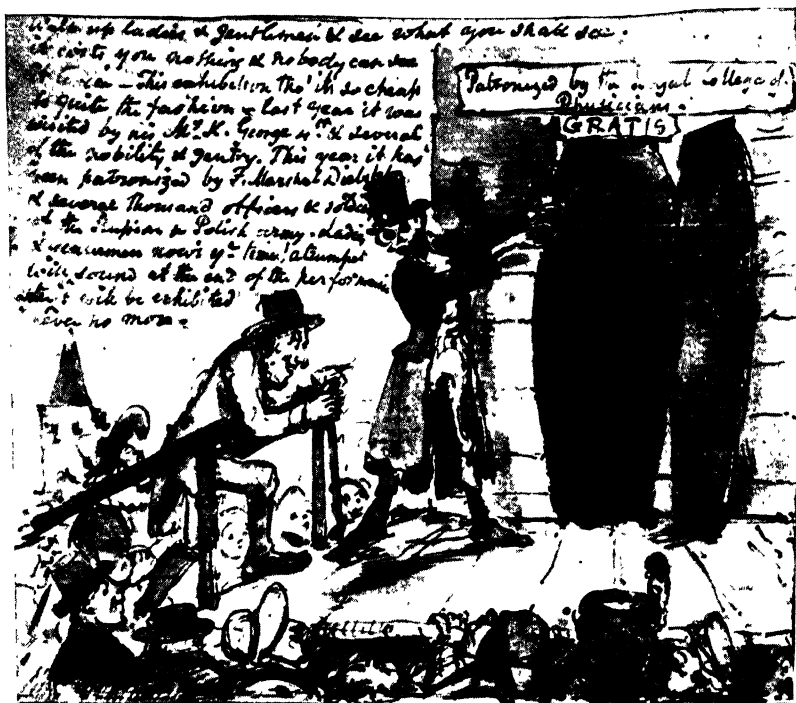 Walk up ladies & gentlemen & see what you shall see.
it costs you nothing & nobody can see
it - This exhibition tho' its so cheap
is quite the fashion - last year it was
visited by his My. K. George & several
of the nobility & gentry. This year it has
been patronized by F. Marshal Diebitch
& several thousand officers & soldiers
of the Russian & Polish army - ladies
& now's yr. time! a trumpet
will sound at the end of the performance
after it will be exhibited
never no more -
Patronized by the royal College of
Physicians.
GRATIS